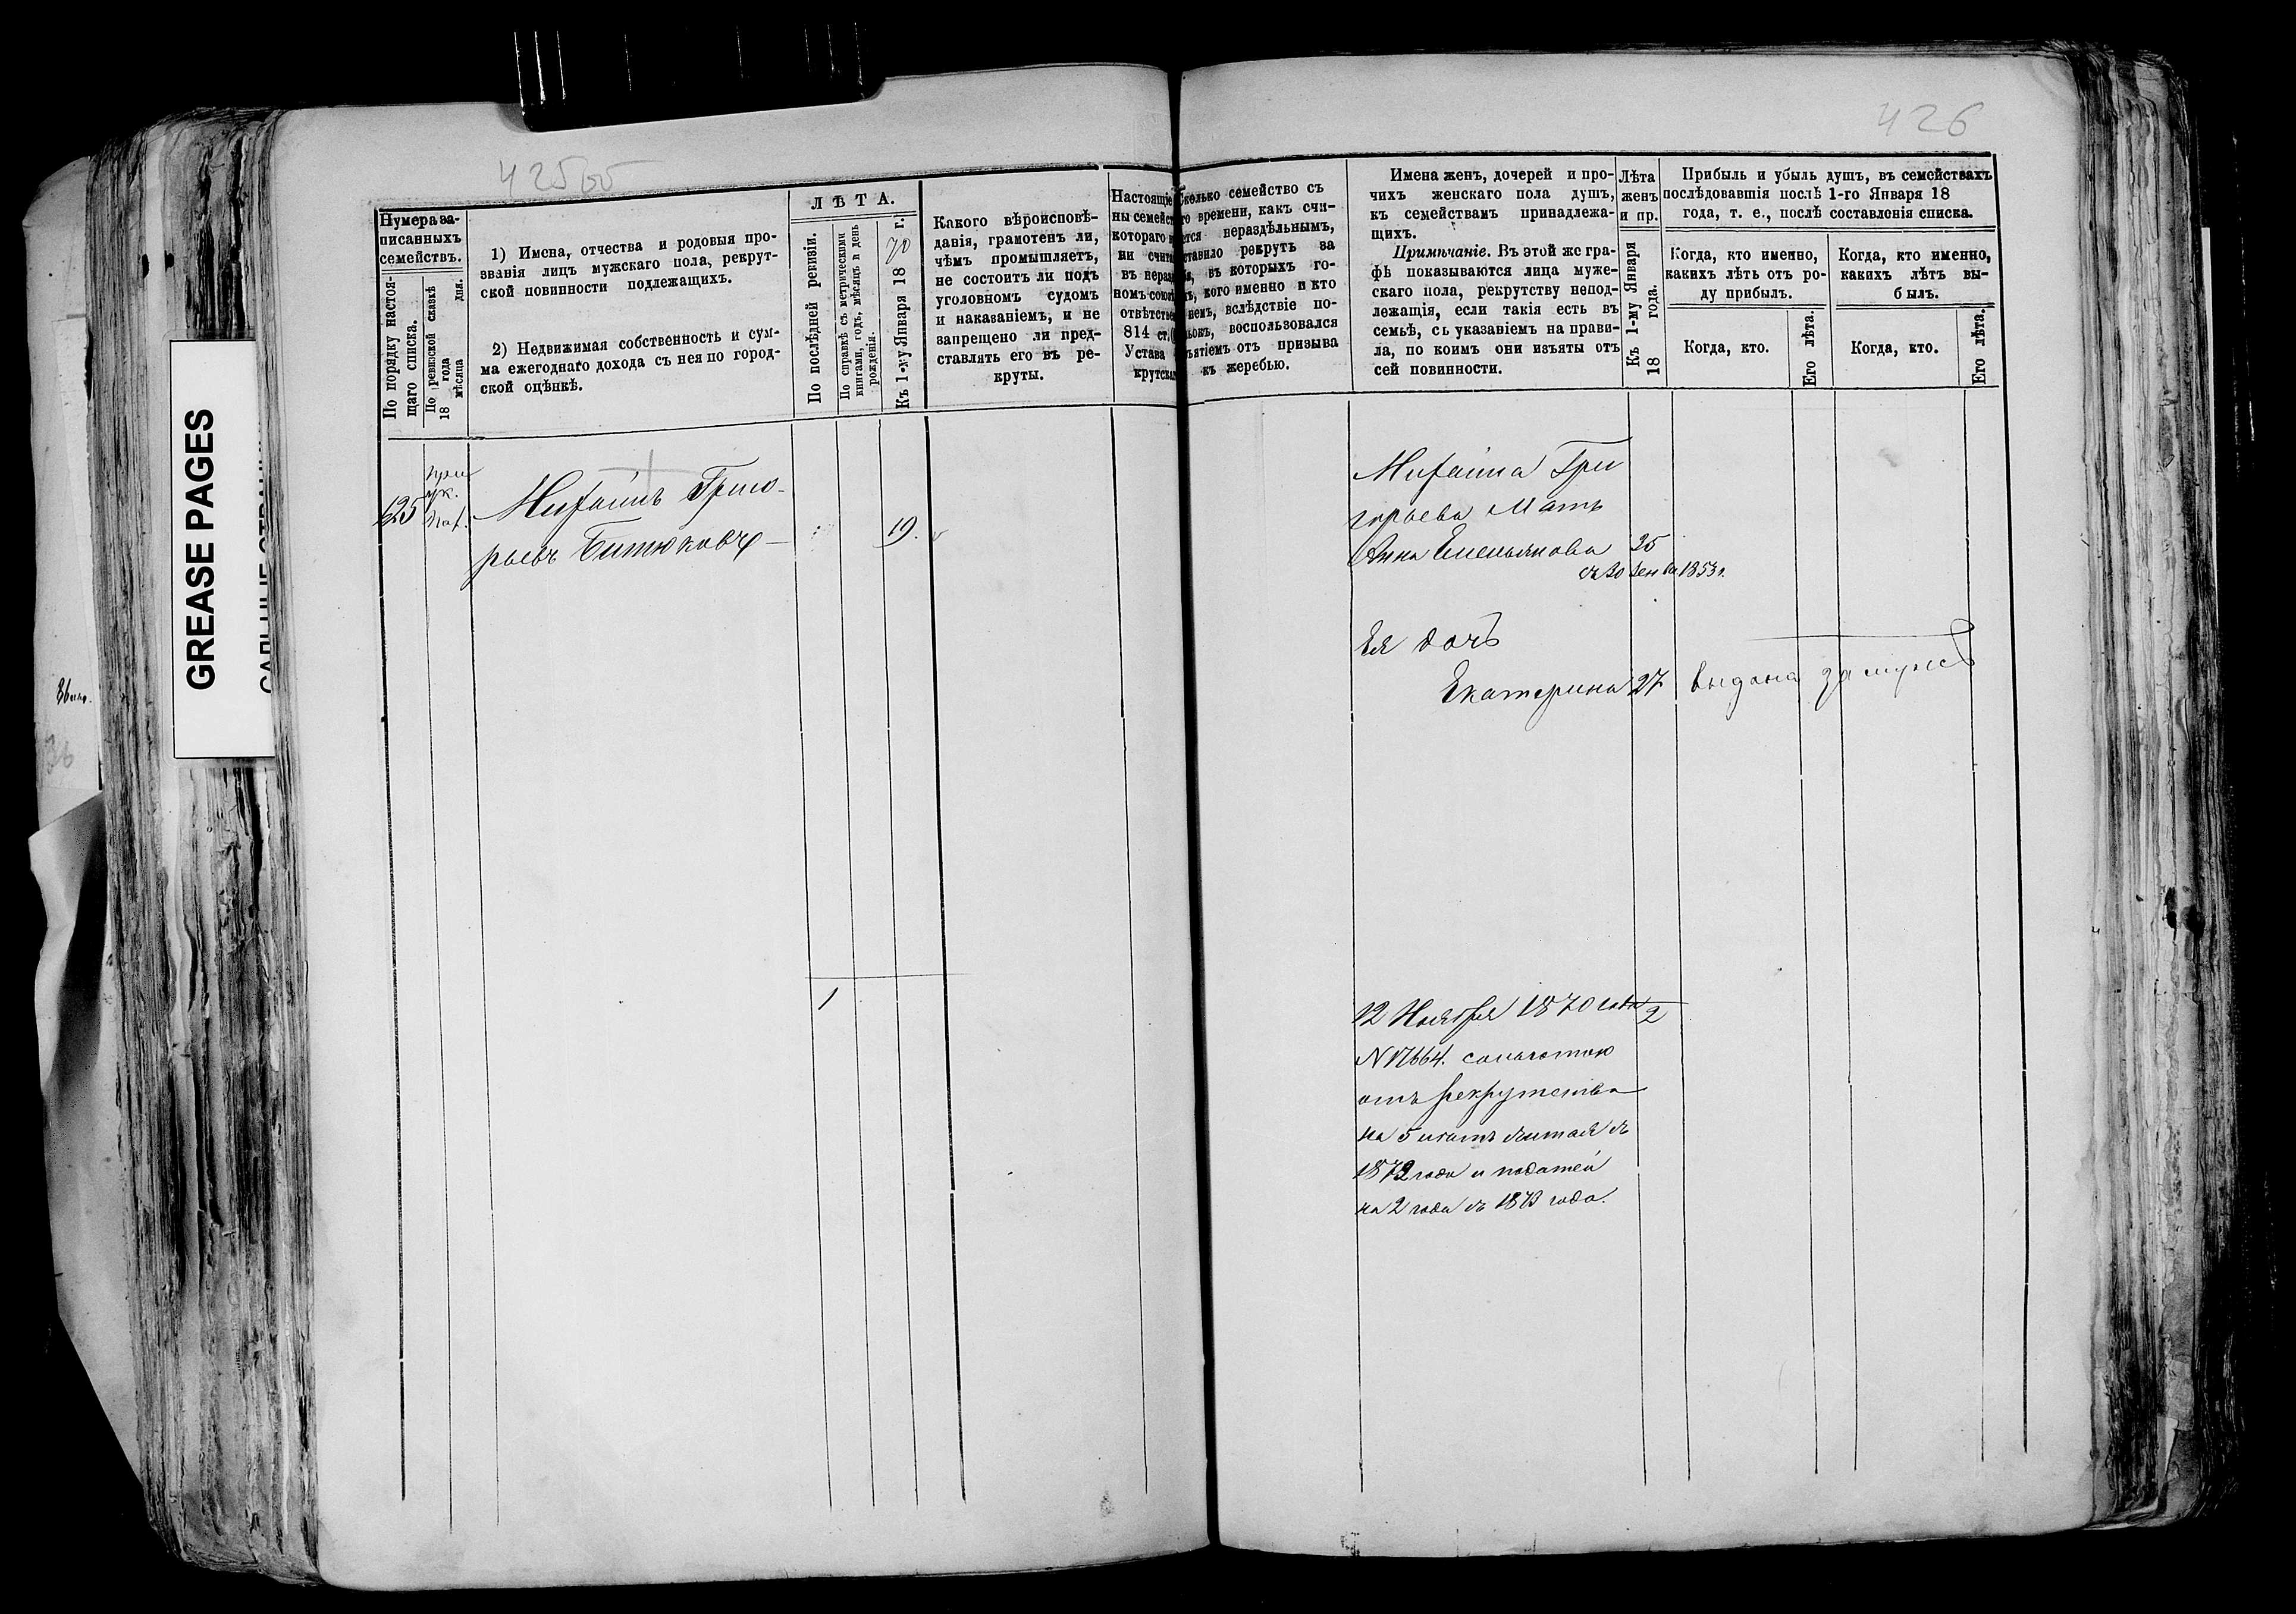 425об
426
GREASE PAGES
Нумера за-
писанныхъ
семействъ.
По порядку настоя-
щаго списка.
По ревизской сказкѣ
18 года
мѣсяца дня.
1) Имена, отчества и родовыя про-
званія лицъ мужскаго пола, рекрут-
ской повинности подлежащихъ.
2) Недвижимая собственность и сум-
ма ежегоднаго дохода съ нея по город-
ской оцѣнкѣ.
ЛѢТА.
По послѣдней ревизіи.
По справкѣ съ метрическими
книгами, годъ, мѣсяцъ и день
рожденія.
Къ 1-му Января 1870 г.
Какого вѣроисповѣ-
данія, грамотенъ ли,
чѣмъ промышляетъ,
не состоитъ ли подъ
уголовномъ судомъ
и наказаніемъ, и не
запрещено ли пред-
ставлять его въ ре-
круты.
Настоящіе
ны семейст
котораго
ни счита
въ нераз
номъ союз
отвѣтстве
814 ст.
Устава
крутска
Сколько семейство съ
го времени, какъ счи-
ется нераздѣльнымъ,
ставило рекрутъ за
я, въ которыхъ го-
ъ, кого именно и кто
немъ, вслѣдствіе по-
ьокъ, воспользовался
ъятіемъ отъ призыва
къ жеребью.
Имена женъ, дочерей и про-
чихъ женскаго пола душъ,
къ семействамъ принадлежа-
щихъ.
Примѣчаніе. Въ этой же гра-
фѣ показываются лица муже-
скаго пола, рекрутству непод-
лежащія, если такія есть въ
семьѣ, съ указаніемъ на прави-
ла, по коимъ они изъяты отъ
сей повинности.
Лѣта
женъ
и пр.
Къ 1-му Января
18 года.
Прибыль и убыль душъ, въ семействахъ
послѣдовавшія послѣ 1-го Января 18
года, т. е., послѣ составленія списка.
Когда, кто именно,
какихъ лѣтъ отъ ро-
ду прибылъ.
Когда, кто именно,
какихъ лѣтъ вы-
былъ.
Когда, кто.
Его лѣта.
Когда, кто.
Его лѣта.
125
Михаилъ Григо-
рьевъ Битюковъ
19.
Михаила Гри
горьева Мать
Анна Емельянова 35
1853 г.
Ея дочь
Екатерина 27 выдана замужъ
1
2
12 Ноября 1870 года
N 17664. сольготою
отъ рекрутства
на 5 лѣтъ считая съ
1872 года и податей
на 2 года съ 1873 года.